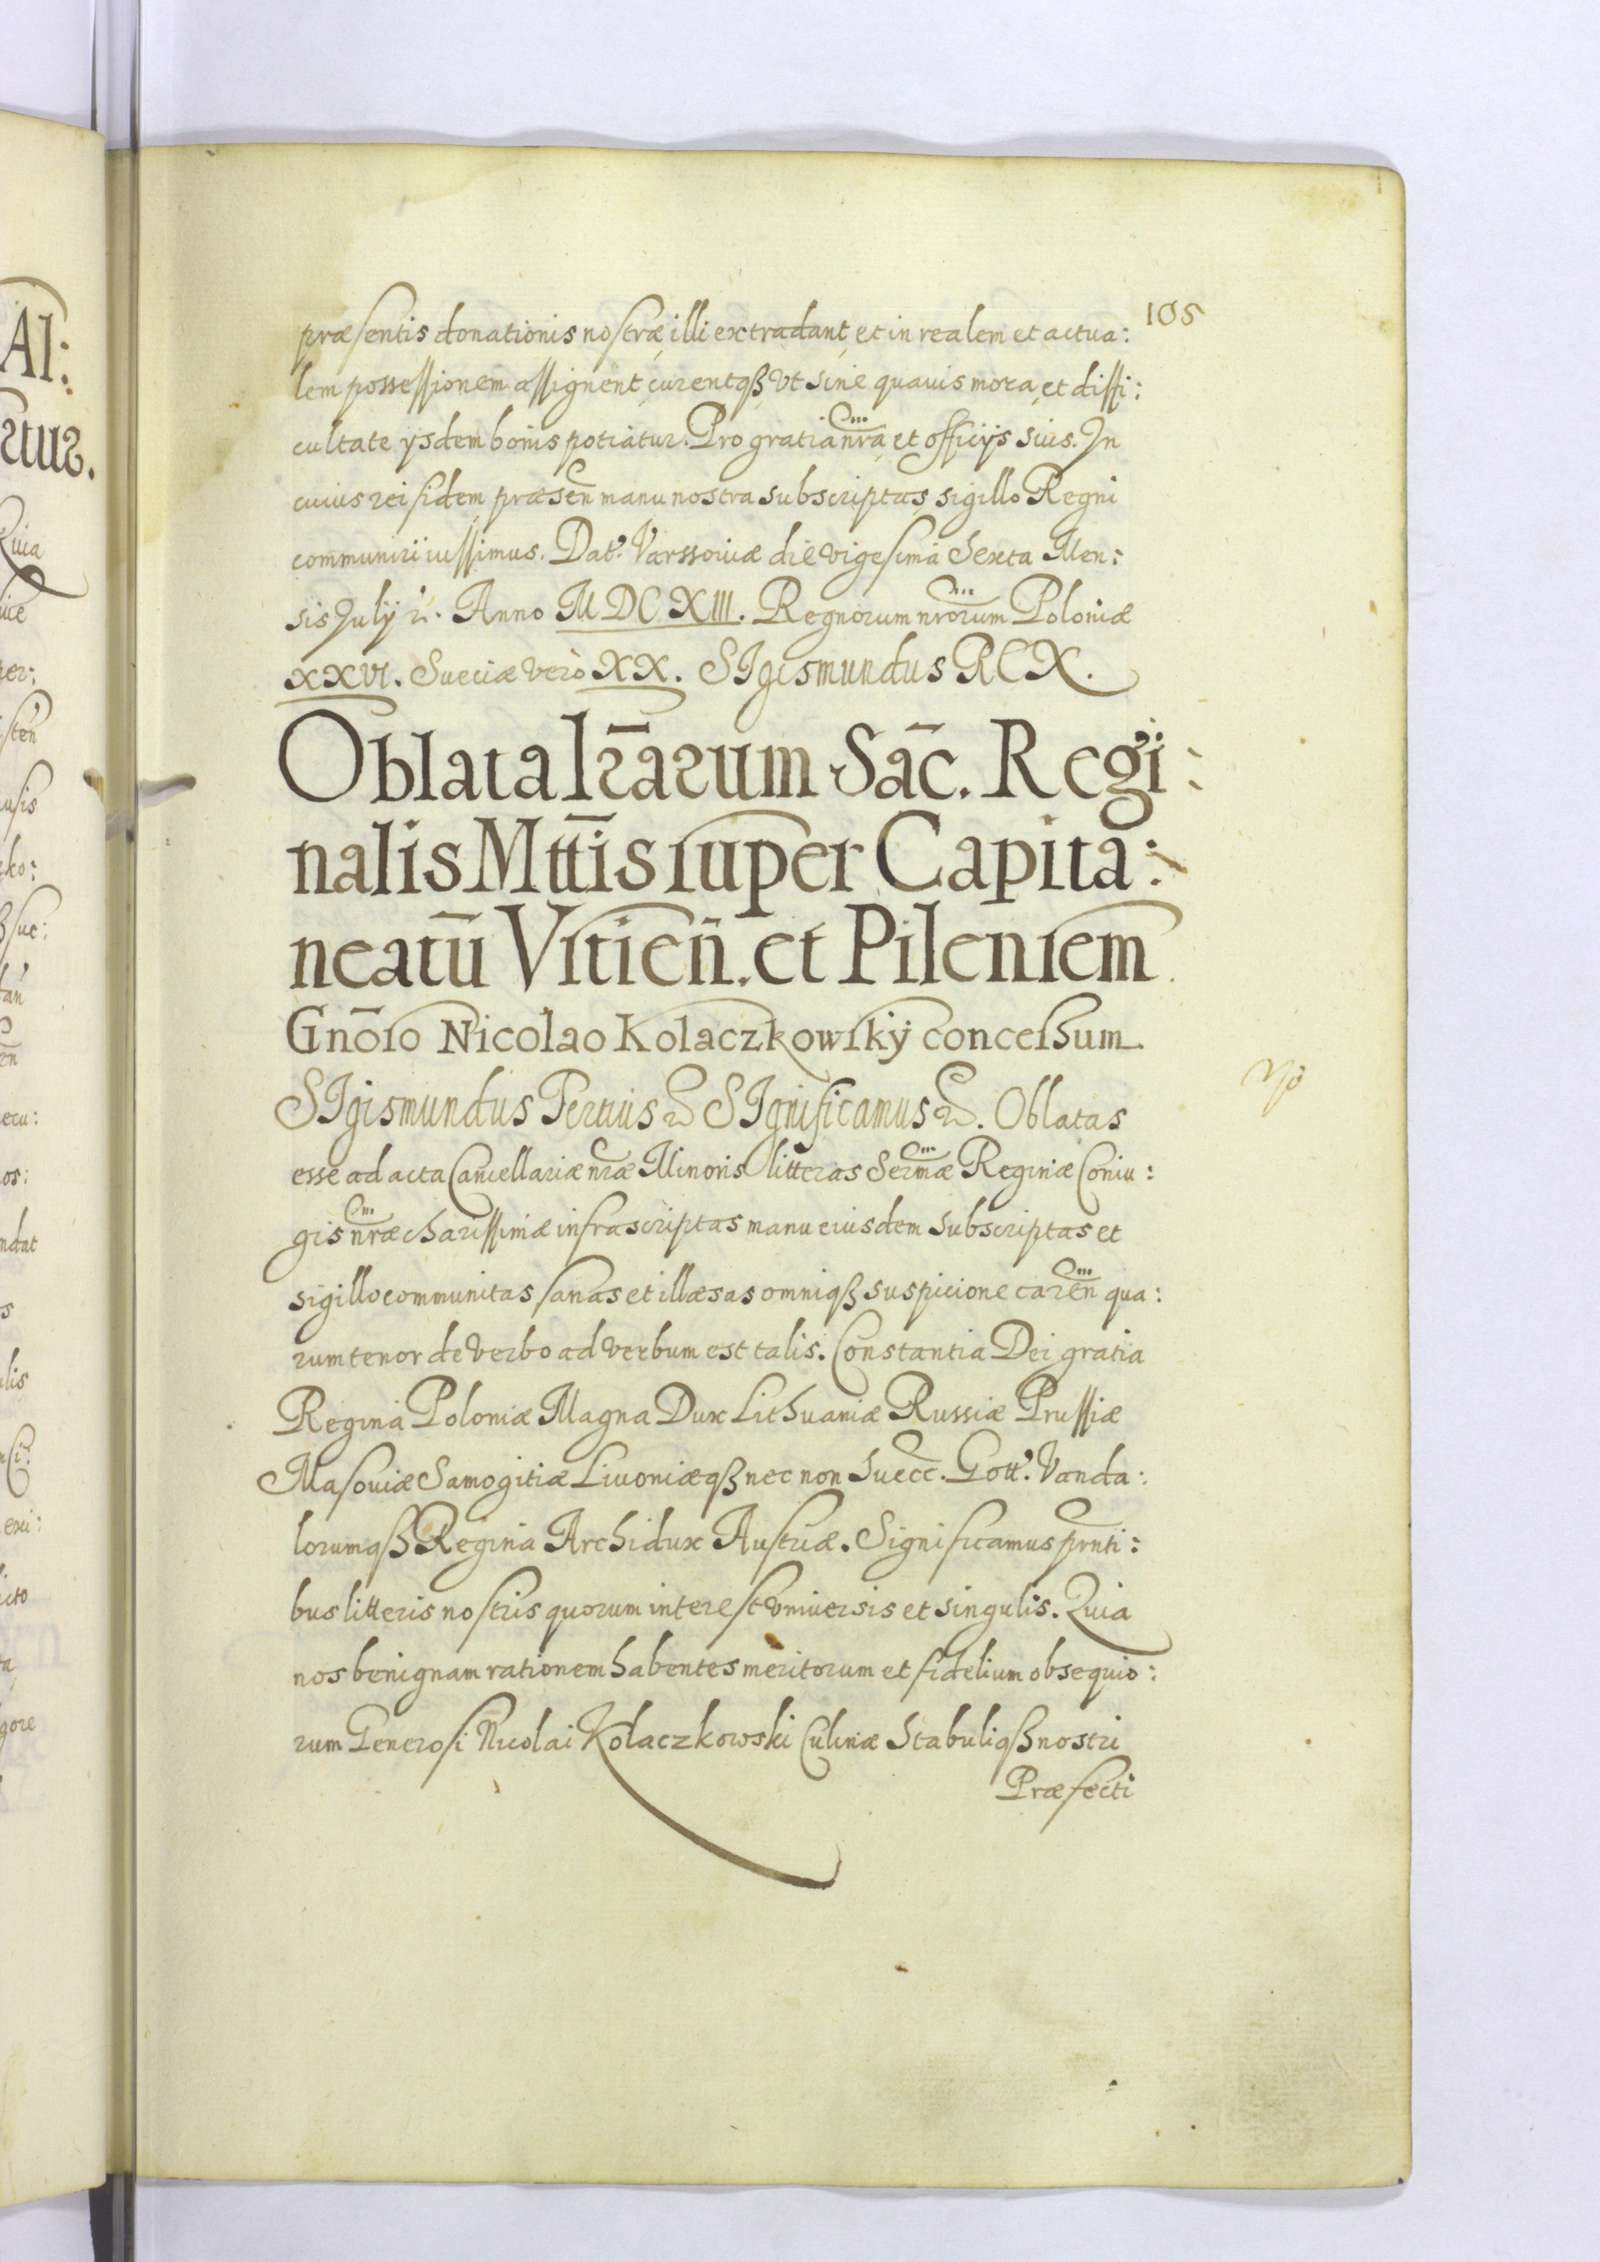 105
præsentis donationis nostræ illi extradant, et in realem et actua:
lem possessionem assignent, curentqß Vt sine quauis mora, et diffi:
cultate ysdem bonis potiatur. Pro gratia nr̃a, et officijs suis. In
cuius rei fidem præseñ manu nostra subscriptas, sigillo Regni
communiri iussimus. Dat. Varssouiæ die vigesima Sexta Men:
sis Julij Anno MDCXIII. Regnorum nrõrum Poloniæ
XXVI. Sueciæ vero XX. SIgismundus REX.
Oblata lr̃arum Sac̃. Regi:
nalis Mtt̃is super Capita:
neatũ Vitsien̄. et Pilensem
Gnõso Nicolao Kolaczkowsky concessum
SIgismundus Tertius SIgnificamus. Oblatas
esse ad acta Cancellariæ nr̃æ Minoris litteras Serm̃æ Reginæ Coniu:
gis nr̃æ charissimæ infrascriptas manu eiusdem subscriptas et
sigillo communitas sanas et illæsas omniqß suspicione careñ qua:
rum tenor de verbo ad verbum est talis. Constantia Dei gratia
Regina Poloniæ Magna Dux Lithuaniæ Russiæ Prussiæ
Masouiæ Samogitiæ Liuoniæqß nec non Suecc. Gott. Vanda:
lorumqß Regina Archidux Austriæ. Significamus prnti:
bus litteris nostris quorum interest vniuersis et singulis. Quia
nos benignam rationem habentes meritorum et fidelium obsequio:
rum Generosi Nicolai Kolaczkowski Culinæ Stabuliqß nostri
Præfecti